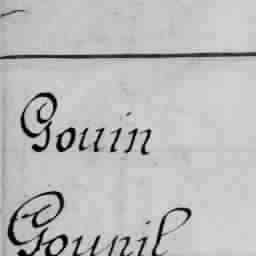 Gouin
Goupil